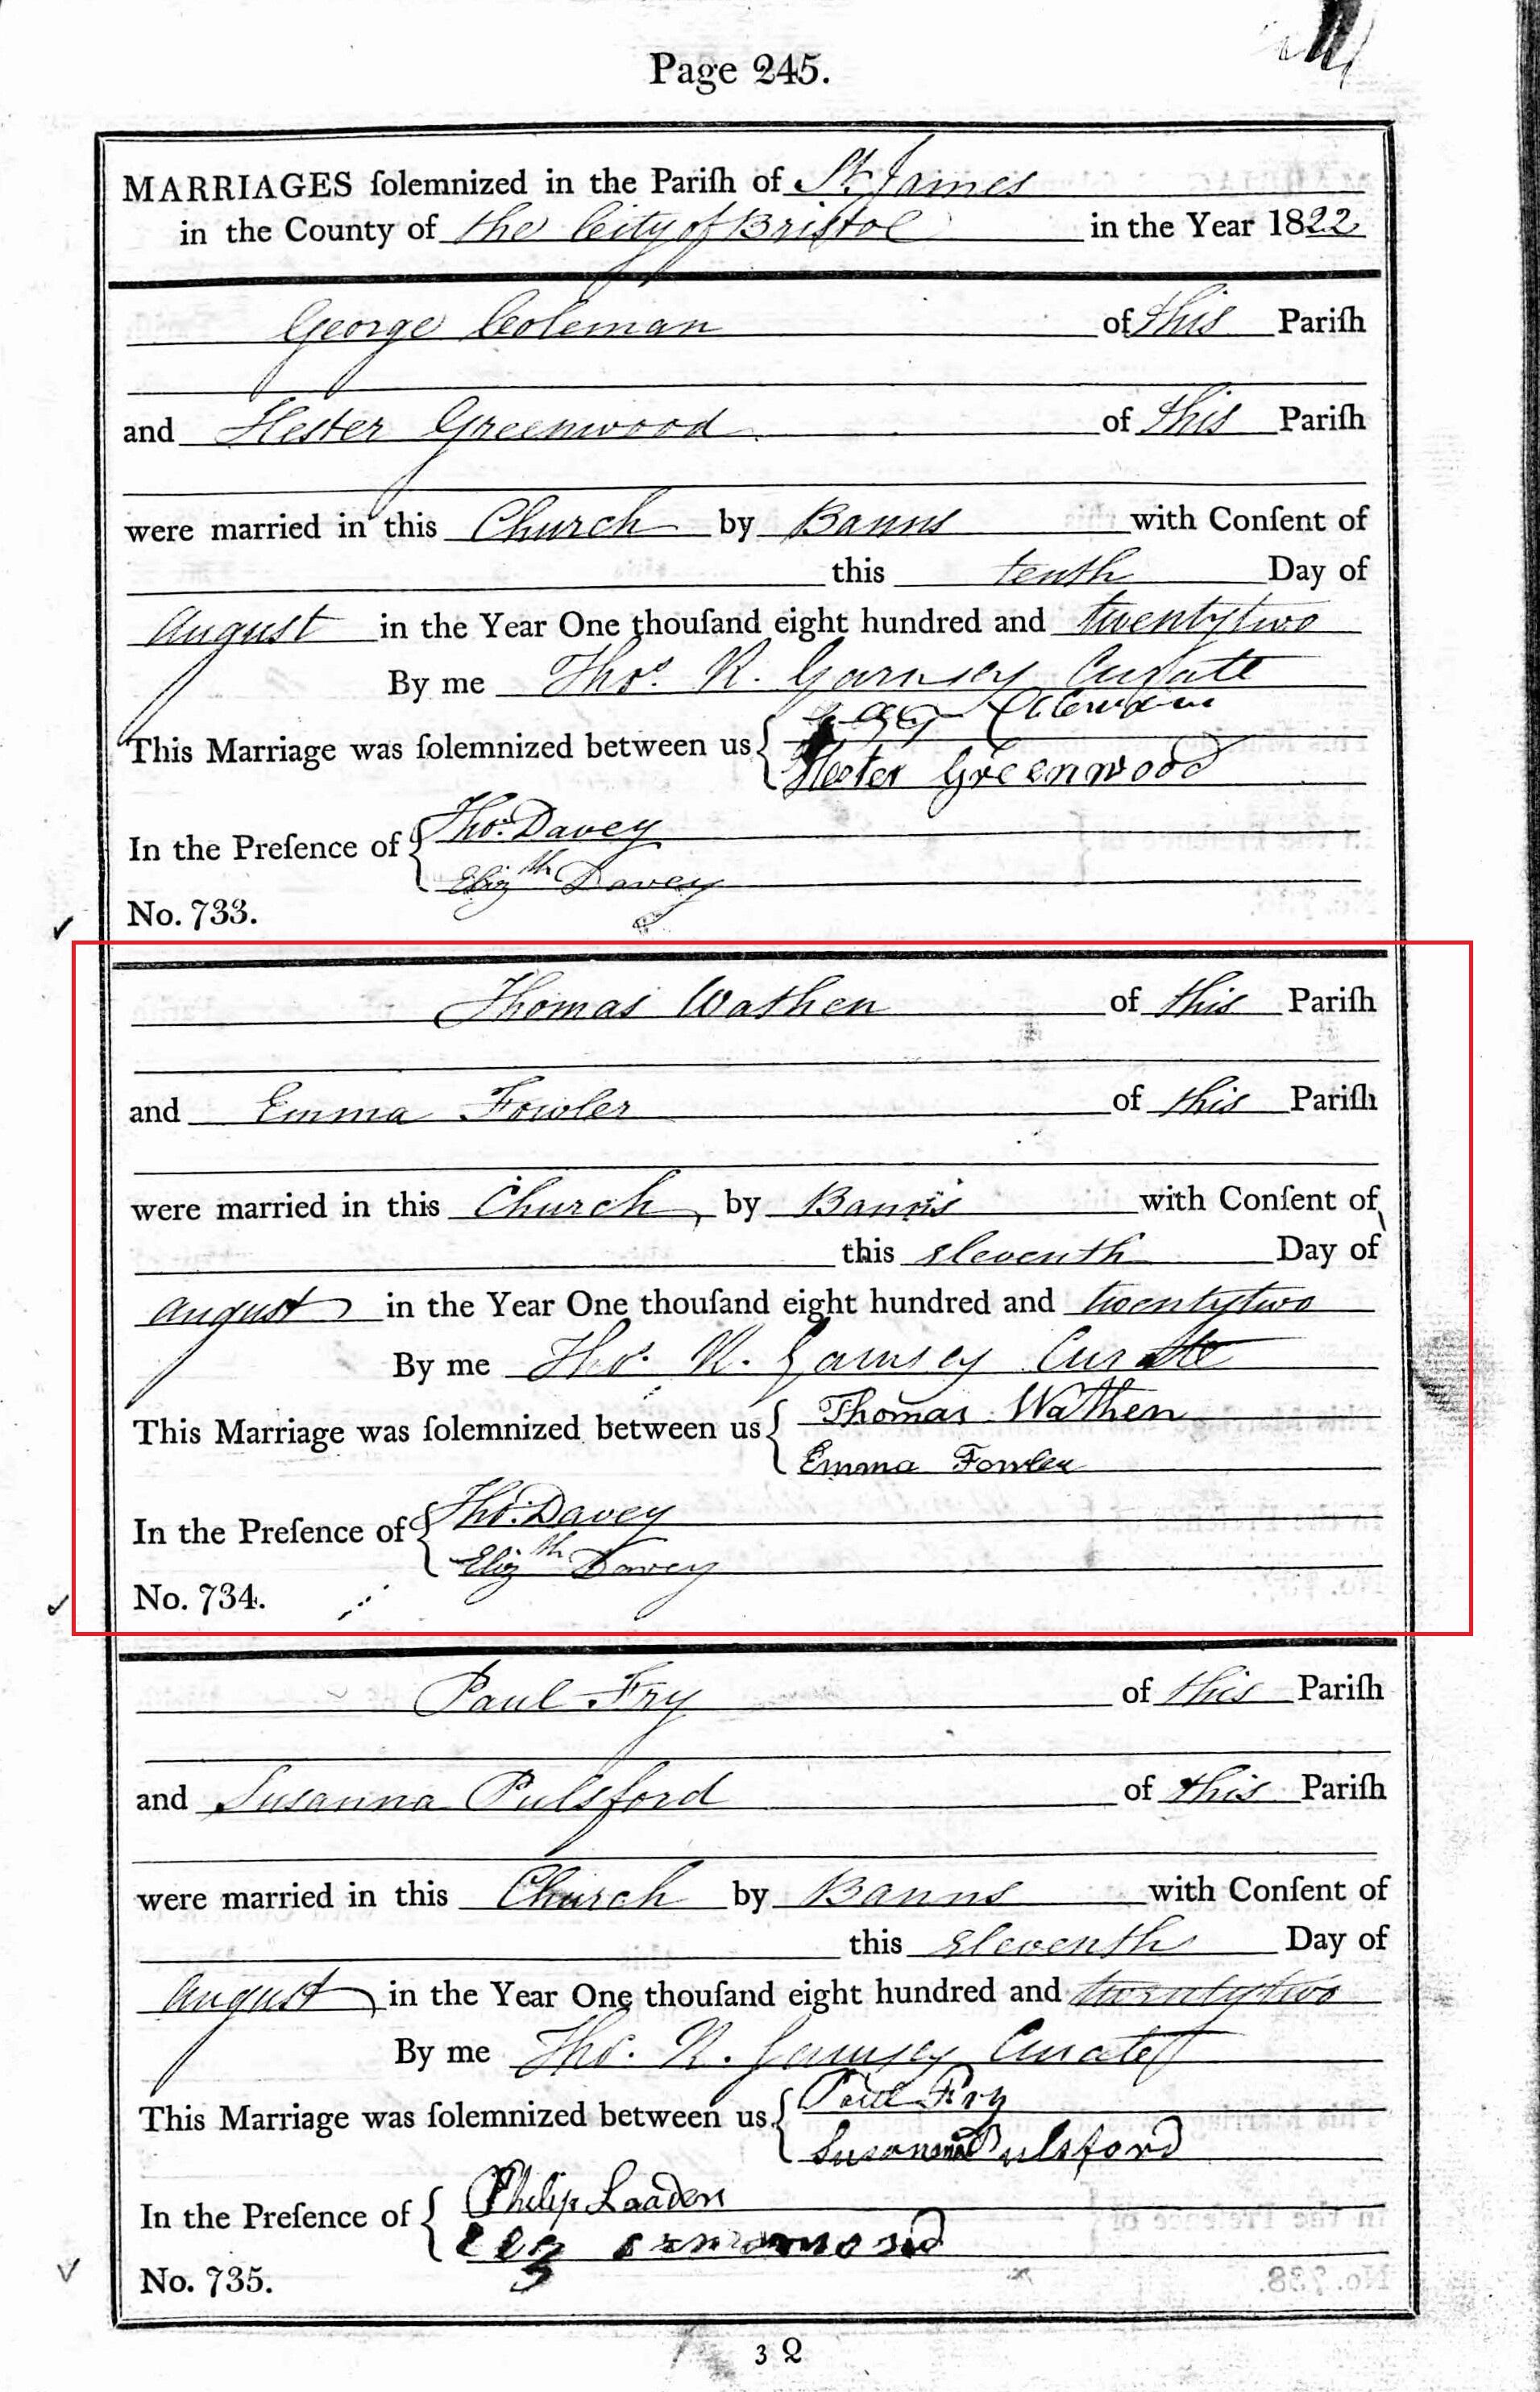 Page 245.
MARRIAGES ſolemnized in the Pariſh of St. James
in the County of the City of Bristol in the Year 1822
George Coleman of this Pariſh
and Hester Greenwood of this Pariſh
were married in this Church by Banns with Conſent of
this tenth Day of
August in the Year One thouſand eight hundred and twentytwo
By me Thos. R. Garnsey Curate
This Marriage was ſolemnized between us { Coleman
Hester Greenwood
In the Preſence of { Thos. Davey
Elizth Davey
No. 733.
Thomas Wathen of this Pariſh
and Emma Fowler of this Pariſh
were married in this Church by Banns with Conſent of
this eleventh Day of
August in the Year One thouſand eight hundred and twentytwo
By me Thos. R. Garnsey Curate
This Marriage was ſolemnized between us { Thomas Wathen
Emma Fowler
In the Preſence of { Thos. Davey
Elizth Davey
No. 734.
Paul Fry of this Pariſh
and Susanna Pulsford of this Pariſh
were married in this Church by Banns with Conſent of
this eleventh Day of
August in the Year One thouſand eight hundred and twentytwo
By me Thos. R. Garnsey Curate
This Marriage was ſolemnized between us { Paul Fry
Susanna Pulsford
In the Preſence of { Philip Laaden
No. 735.
3 Q